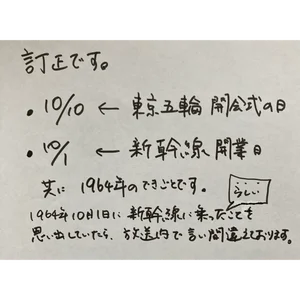 訂正です。
・10/10 ← 東京五輪開会式の日
・10/1 ← 新幹線開業日
共に 1964年のできごとです。
らしい
1964年10月1日に新幹線に乗ったことを
思い出していたら、放送内で言い間違えております。